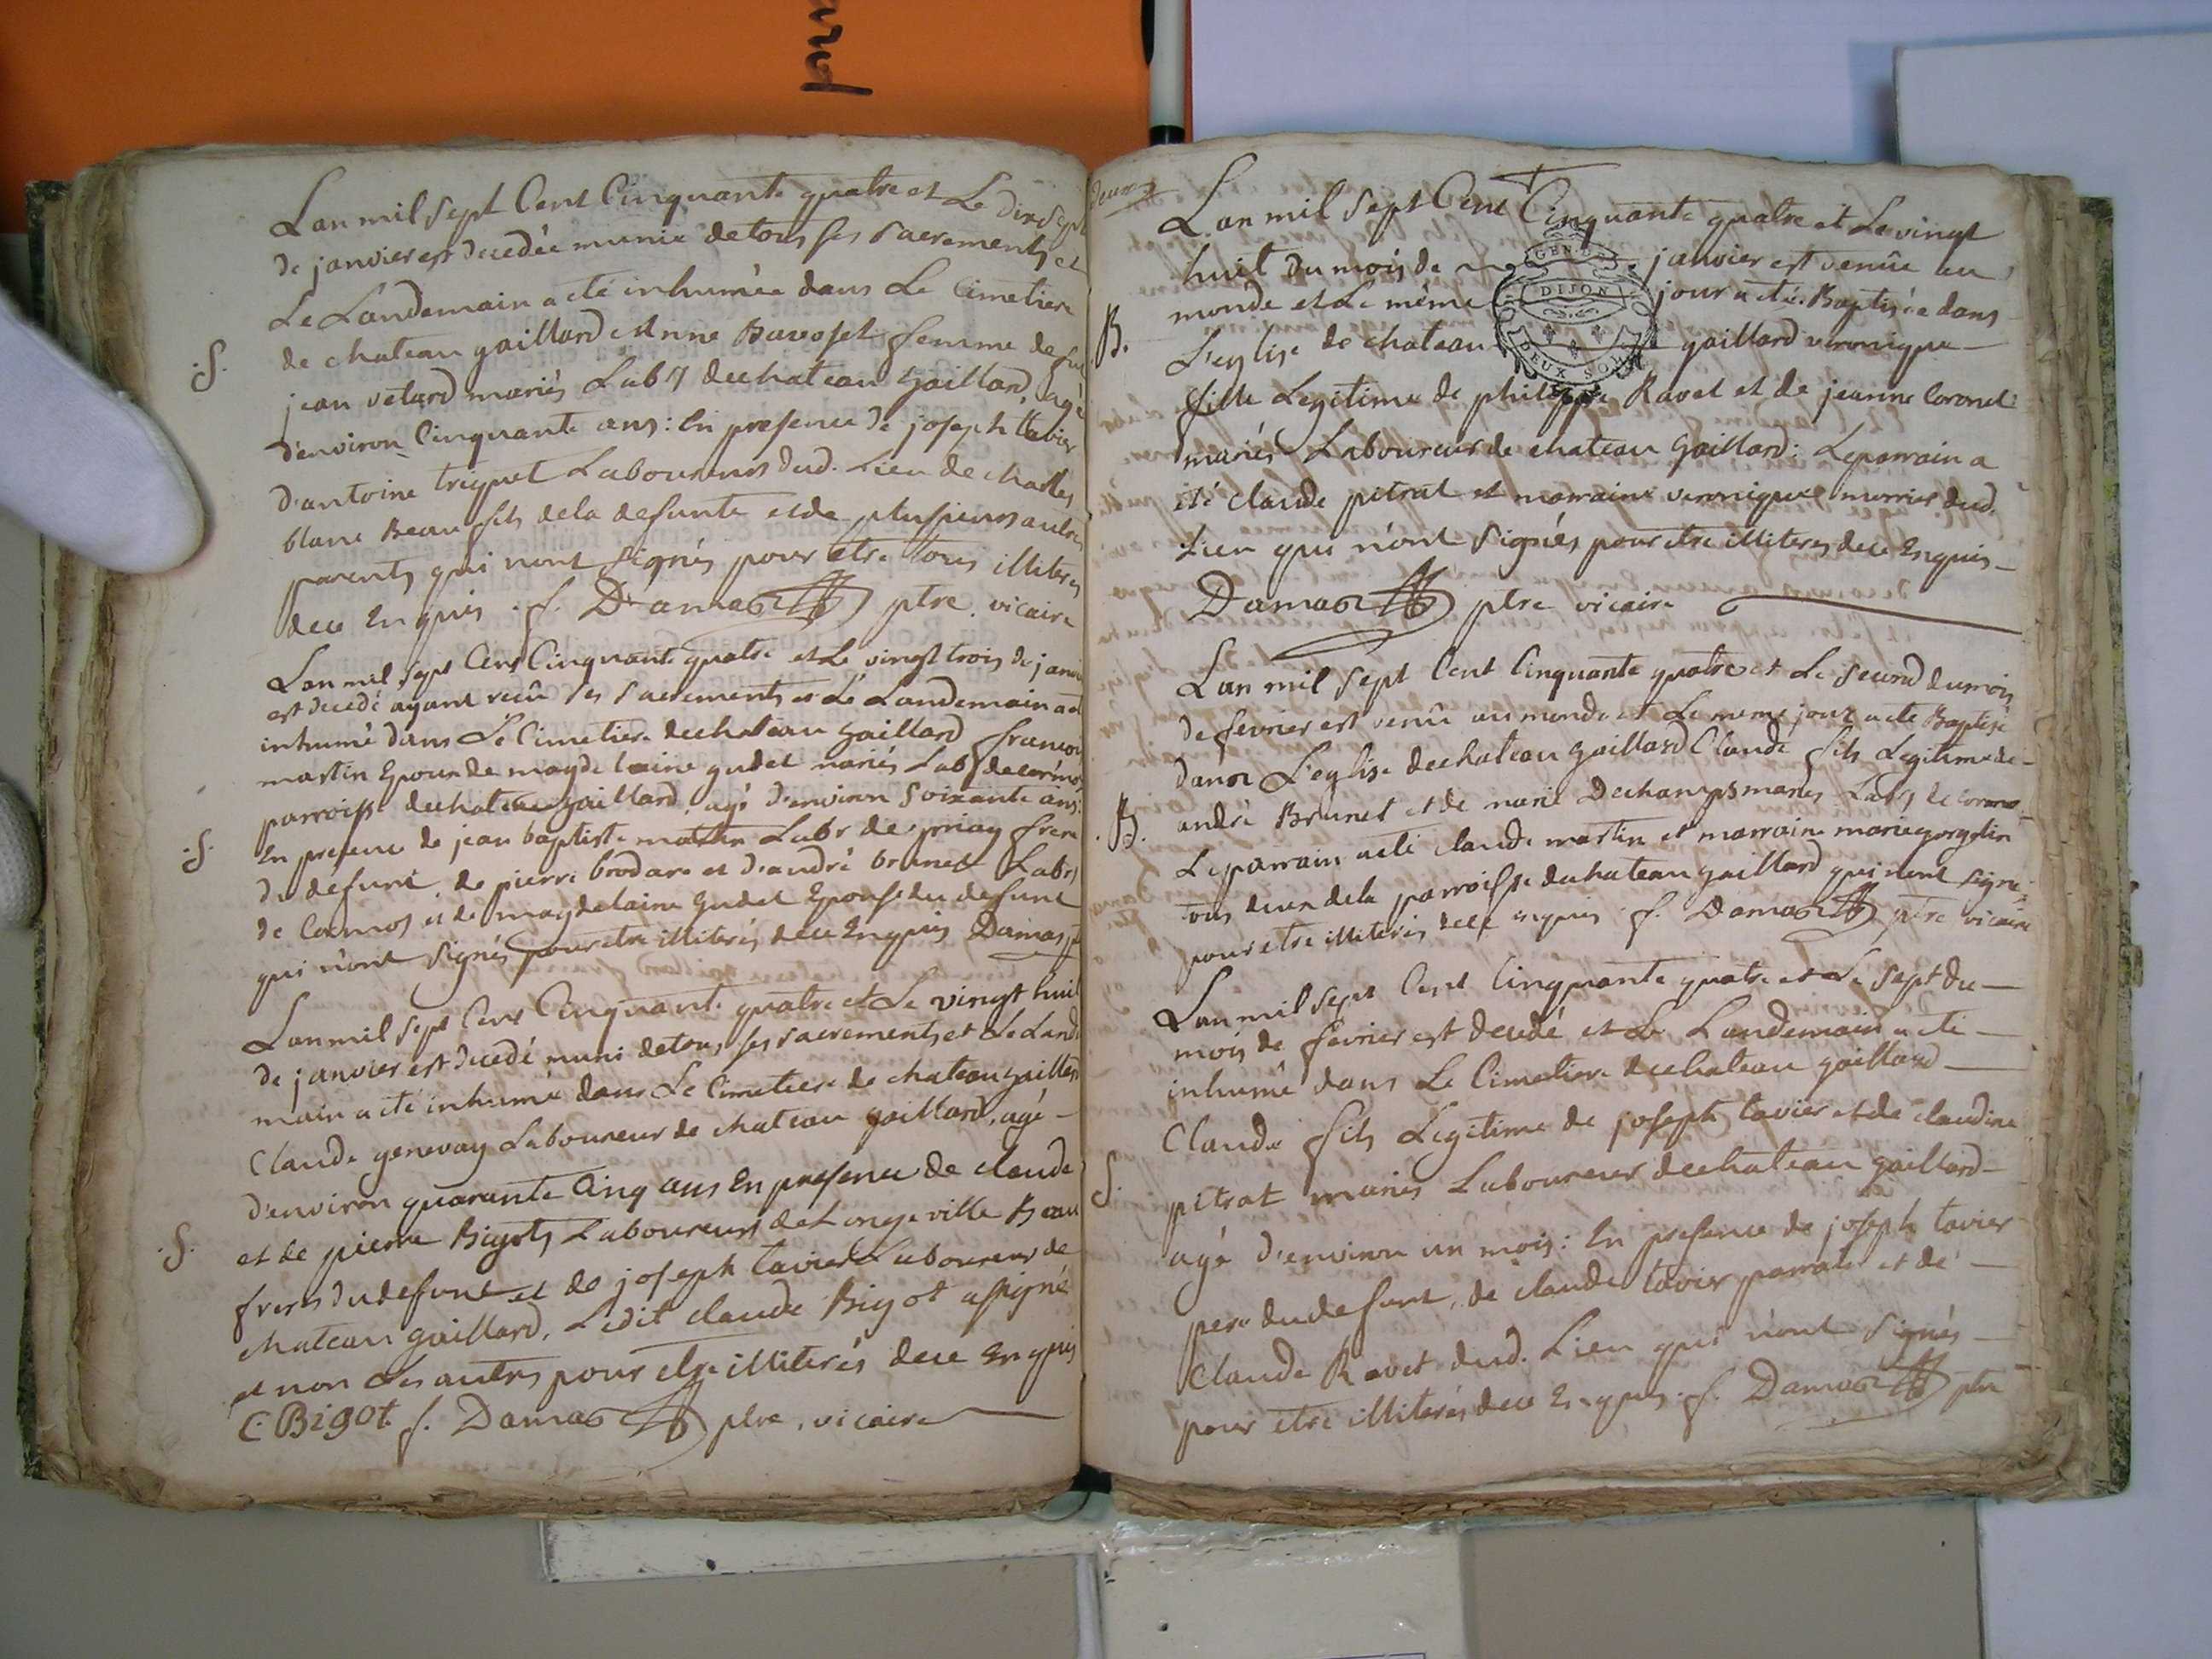 Lan mil sept Cent Cinquante quatre et Le dix sept
de janvier est decedée munie de tous ses sacrements et
Le Landemain a eté inhumée dans Le Cimetiere
de chateau gaillard Anne Bavoset femme de feu
.S.
jean vetard mariés Labrs de chateau gaillard, agé
d'environ Cinquante ans: En presence de joseph tavier
d'antoine treguet Laboureurs dud. Lieu de charles
blanc Beau fils de la defunte et de plussieurs autres
parents qui n'ont signés pour etre tous illiteres
de ce Enquis . f. Damas ptre. vicaire
Lan mil sept Cent Cinquante quatre et Le vingt trois de janvi
est decedé ayant recû ses sacrements et Le Landemain a eté
inhumé dans Le Cimetiere de chateau gaillard francois
martin Epoux de magdelaine gudet mariés Labrs de cormos
parroisse de chateau gaillard, agé d'environ soixante ans:
.S.
En presence de jean baptiste martin Labr de priay frere
du defunt, de pierre brodard et d'andré brunet Labrs
de Cormos et de magdelaine gudet Epouse du defunt
qui n'ont signés pour etre illiterés de ce Enquis Damas pt
Lan mil sept Cent Cinquante quatre et Le vingt huit
de janvier est decedé muni de tous ses sacrements et Le Lande
main a eté inhumé dans Le Cimetiere de chateau gaillard
Claude genevay Laboureur de chateau gaillard, agé
d'environ quarante Cinq ans En presence de claude
et de pierre Bigots Laboureurs de Longeville Beau
.S.
freres du defunt et de joseph tavier Laboureur de
chateau gaillard, Ledit claude Bigot a signé
et non Les autres pour etre illiterés de ce Enquis
C. Bigot. f. Damas ptre, vicaire
deux
Lan mil sept Cent Cinquante quatre et Le vingt
huit du mois de janvier est venûe au
monde et Le même jour a eté Baptisée dans
B.
L'eglise de chateau gaillard veronique
GEN.
DIJON
DEUX SOLS
fille Legitime de philippe Ravet et de jeanne Coronet
mariés Laboureurs de chateau gaillard: Le parrain a
eté claude pitrat et marraine veronique murrier dud.
Lieu qui n'ont signés pour etre illiteres de ce Enquis
Damas ptre vicaire
Lan mil sept Cent Cinquante quatre et Le second du mois
de fevrier est venû au monde et Le meme jour a eté Baptisé
dans L'eglise de chateau gaillard Claude fils Legitime de
andré Brunet et de marie Dechamps mariés Labrs de cormos
.B.
Le parrain a eté claude martin et marraine marie
tous deux de la parroisse de chateau gaillard qui n'ont signés
pour etre illiterés de ce enquis f. Damas ptre vicaire
Lan mil sept Cent Cinquante quatre et Le sept du
mois de fevrier est decedé et Le Landemain a eté
inhumé dans Le Cimetiere de chateau gaillard
Claude fils Legitime de joseph tavier et de claudine
S.
pitrat mariés Laboureurs de chateau gaillard
agé d'environ un mois: En presence de joseph tavier
pere du defunt, de claude tavier et de
Claude Ravet dud. Lieu qui n'ont signés
pour etre illiterés de ce Enquis. f. Damas ptre